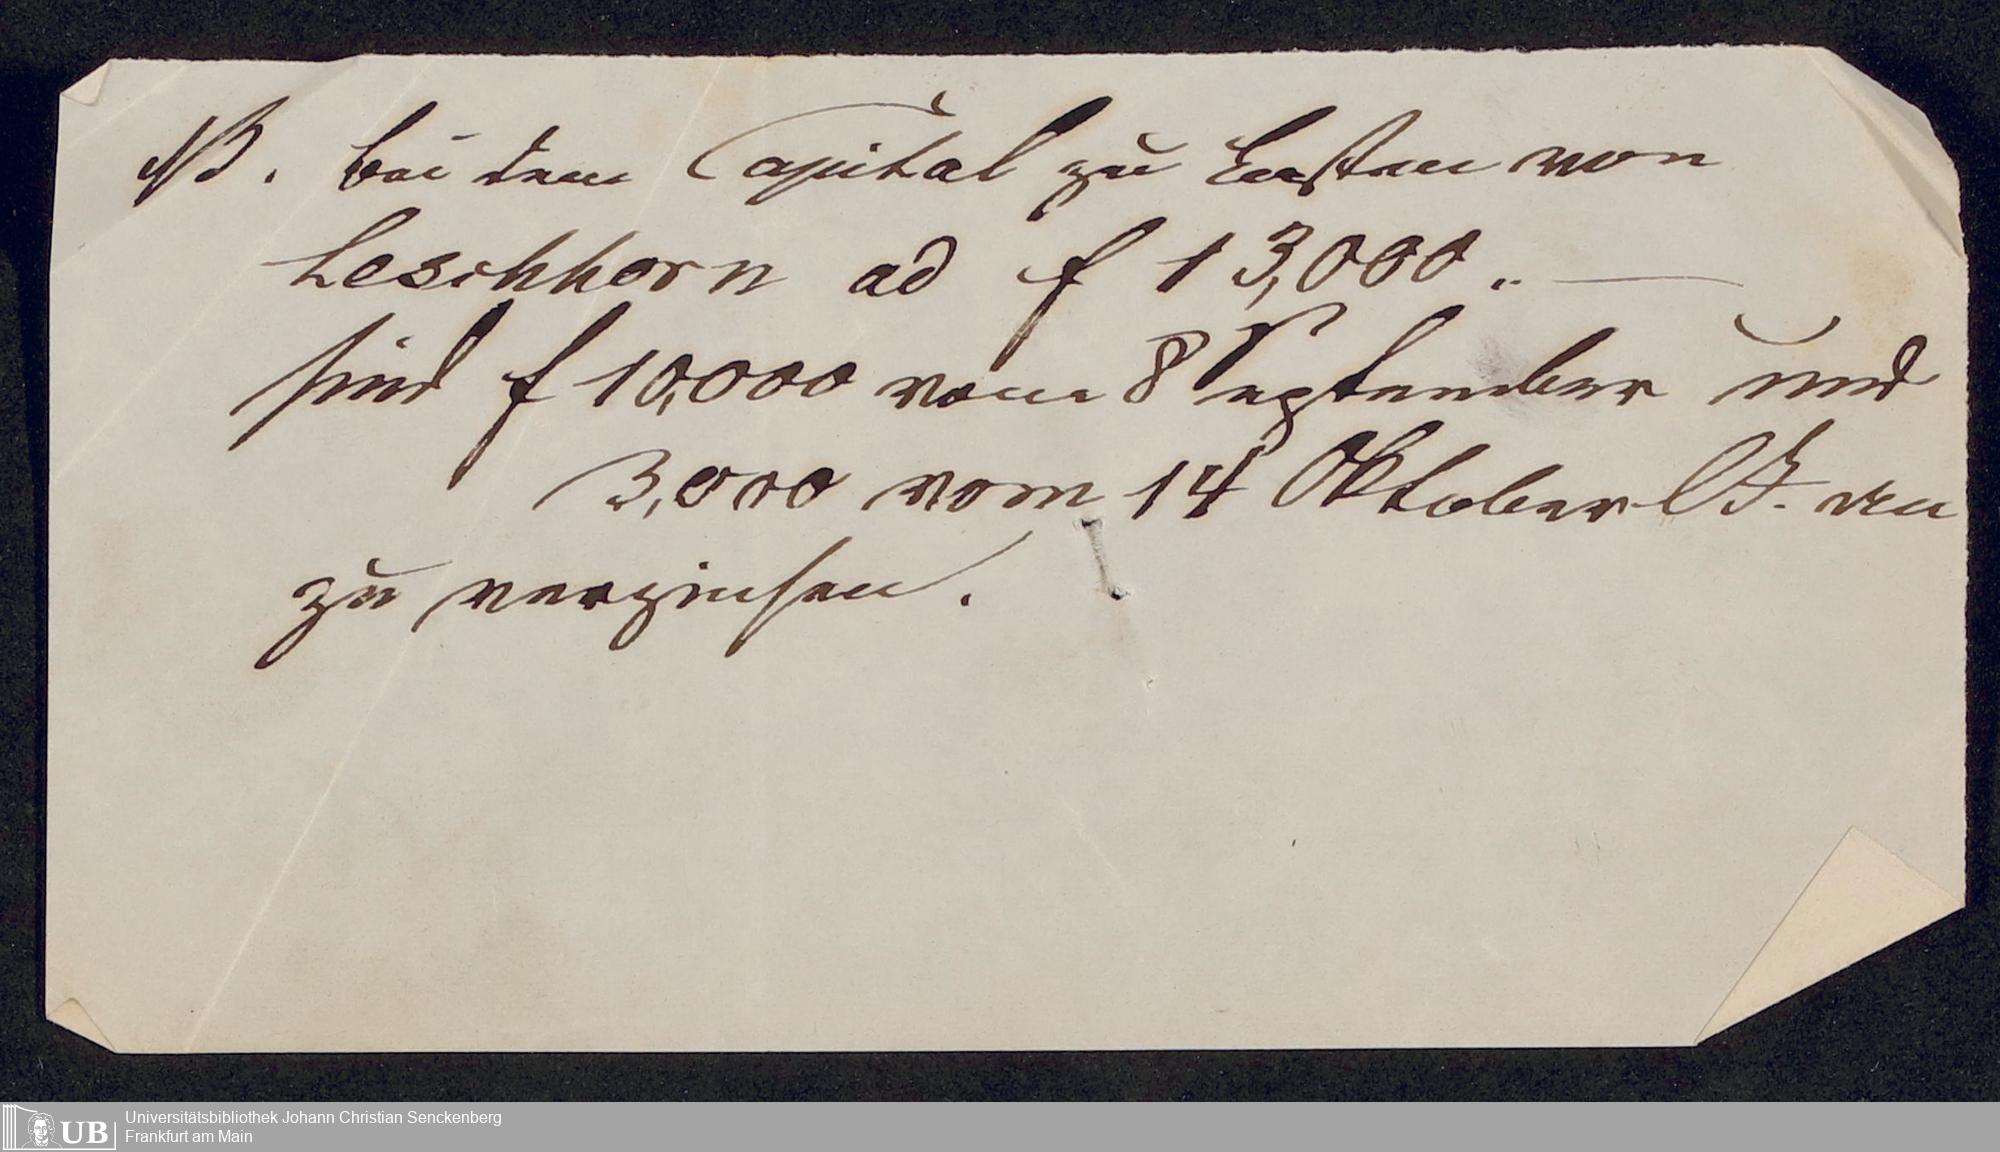 NB. bei dem Capital zu Lasten von
Leschhorn ad f 13,000.. —
sind f 10,000 vom 8 September und
3,000 vom 14 Oktober an
zu verzinsen.
UB
Universitätsbibliothek Johann Christian Senckenberg
Frankfurt am Main